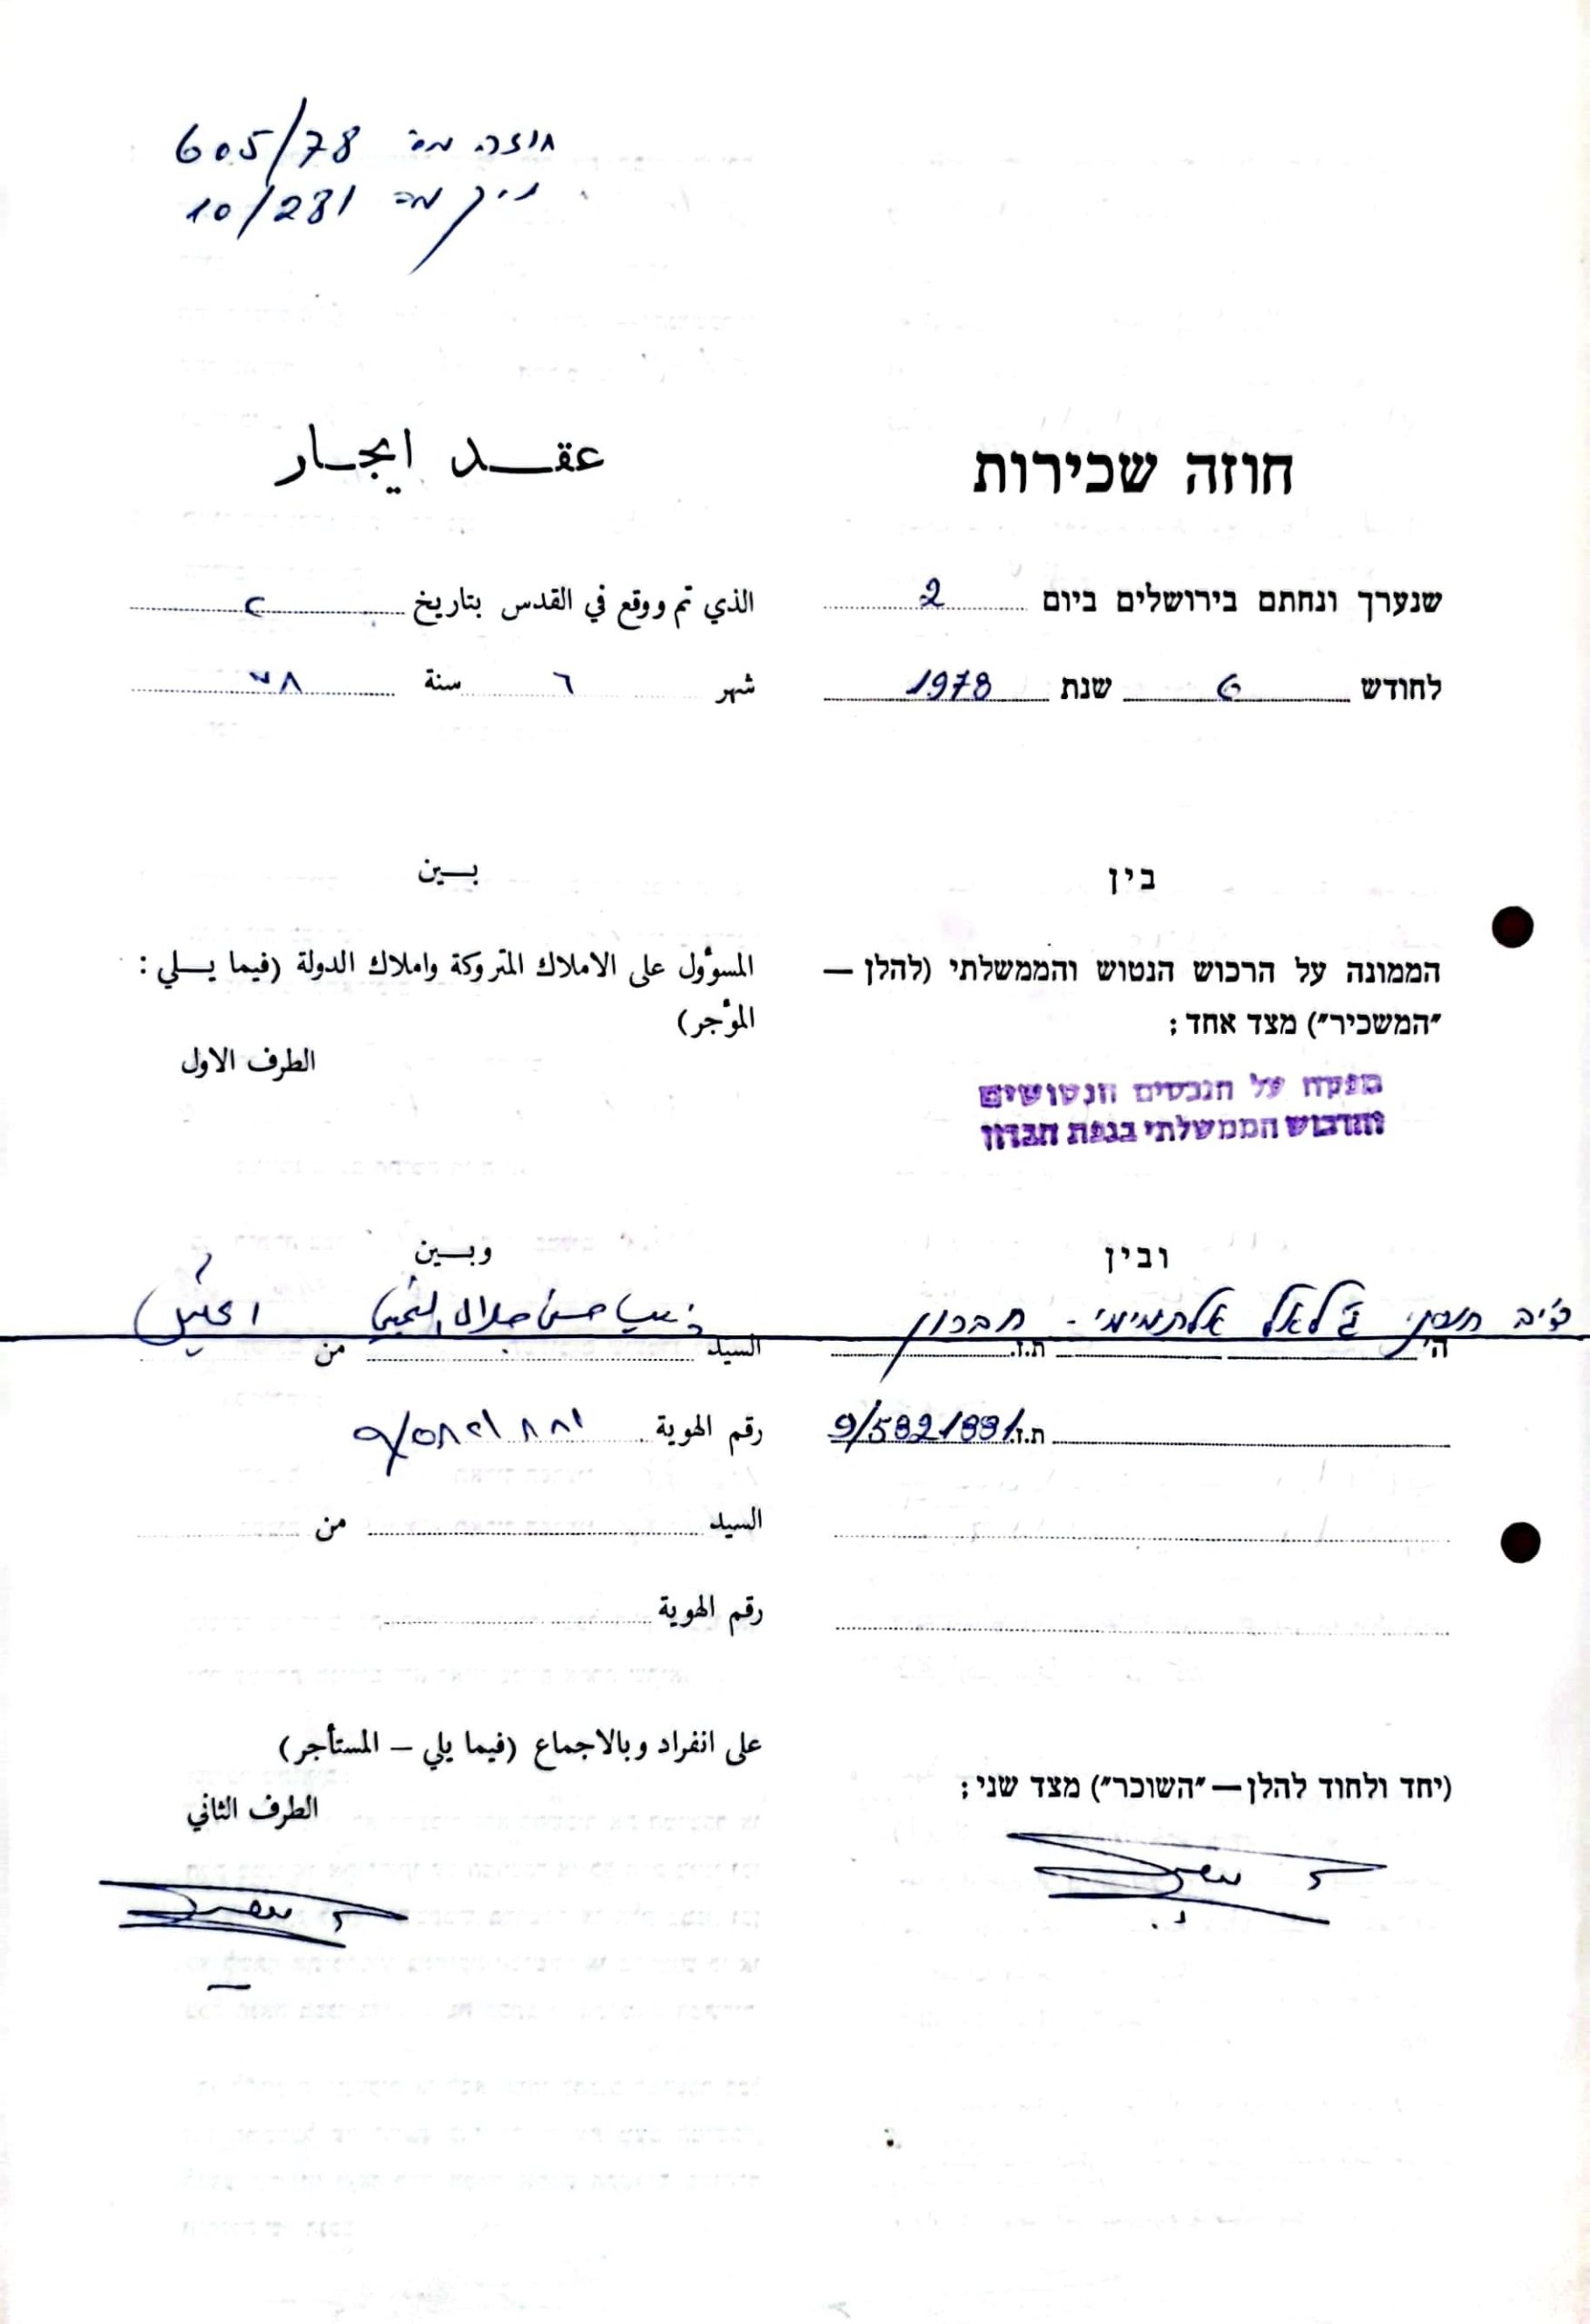 חוזה מס' 605/78
תיק מס' 10/231
חוזה שכירות
שנערך ונחתם בירושלים ביום 2
לחודש 6 שנת 1978
בין
הממונה על הרכוש הנטוש והממשלתי (להלן —
"המשכיר") מצד אחד ;
מפקח על הנכסים הנטושים
והרכוש הממשלתי בנפת חברון
ובין
חסן ג'לאל אלתמימי - חברון
ה"ה ת.ז.
ת.ז. 9/5821881
(יחד ולחוד להלן — "השוכר") מצד שני ;
عقـــد ايجـــار
الذي تم ووقع في القدس بتاريخ ٢
شهر ٦ سنة ٧٨
بـــين
المسوًول على الاملاك المتروكة واملاك الدولة (فيما يـــلي :
الموًجر)
الطرف الاول
وبـــين
حسن جلال التميمي الخليل
السيد من
رقم الهوية ٩/٥٨٢١٨٨١
السيد من
رقم الهوية
على انفراد وبالاجماع (فيما يلي — المستأجر)
الطرف الثاني